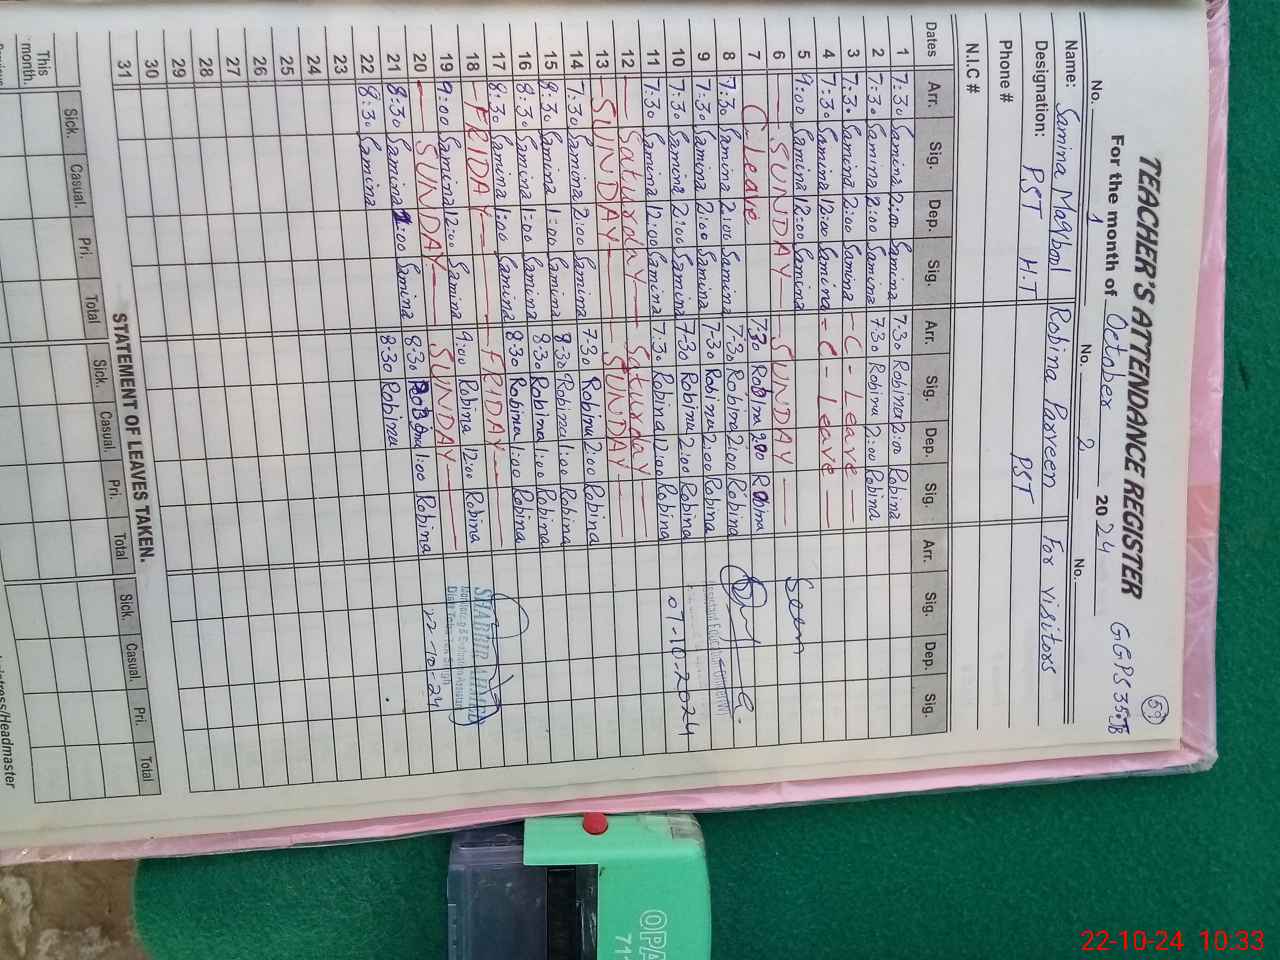 59
TEACHER'S ATTENDANCE REGISTER GGPS 35 JB
For the month of October 2024
No. 1 No. 2 No.
Name: Samina Maqbool Robina Parveen For visitors
Designation: PST H.T PST
Phone #
N.I.C #
Dates Arr. Sig. Dep. Sig. Arr. Sig. Dep. Sig. Arr. Sig. Dep. Sig.
1 7:30 Samina 2:00 Samina 7:30 Robina 2:00 Robina
2 7:30 Samina 2:00 Samina 7:30 Robina 2:00 Robina
3 7:30 Samina 2:00 Samina — C - Leave —
4 7:30 Samina 12:00 Samina - C - Leave —
5 9:00 Samina 12:00 Samina Seen
6 — SUNDAY — — SUNDAY —
7 C.Leave 7:30 Robina 2:00 Robina
8 7:30 Samina 2:00 Samina 7:30 Robina 2:00 Robina
9 7:30 Samina 2:00 Samina 7:30 Robina 2:00 Robina
10 7:30 Samina 2:00 Samina 7:30 Robina 2:00 Robina 07-10-2024
11 7:30 Samina 12:00 Samina 7:30 Robina 12:00 Robina
12 — Saturday — — Saturday —
13 — SUNDAY — — SUNDAY —
14 7:30 Samina 2:00 Samina 7:30 Robina 2:00 Robina
15 8:30 Samina 1:00 Samina 8:30 Robina 1:00 Robina
16 8:30 Samina 1:00 Samina 8:30 Robina 1:00 Robina
17 8:30 Samina 1:00 Samina 8:30 Robina 1:00 Robina
18 — FRIDAY — — FRIDAY —
19 9:00 Samina 12:00 Samina 9:00 Robina 12:00 Robina
20 — SUNDAY — — SUNDAY —
21 8:30 Samina 1:00 Samina 8:30 Robina 1:00 Robina 22-10-24
22 8:30 Samina 8:30 Robina
23
24
25
26
27
28
29
30
31
STATEMENT OF LEAVES TAKEN.
Sick. Casual. Pri. Total Sick. Casual. Pri. Total Sick. Casual. Pri. Total
This month.
OPA
22-10-24 10:33